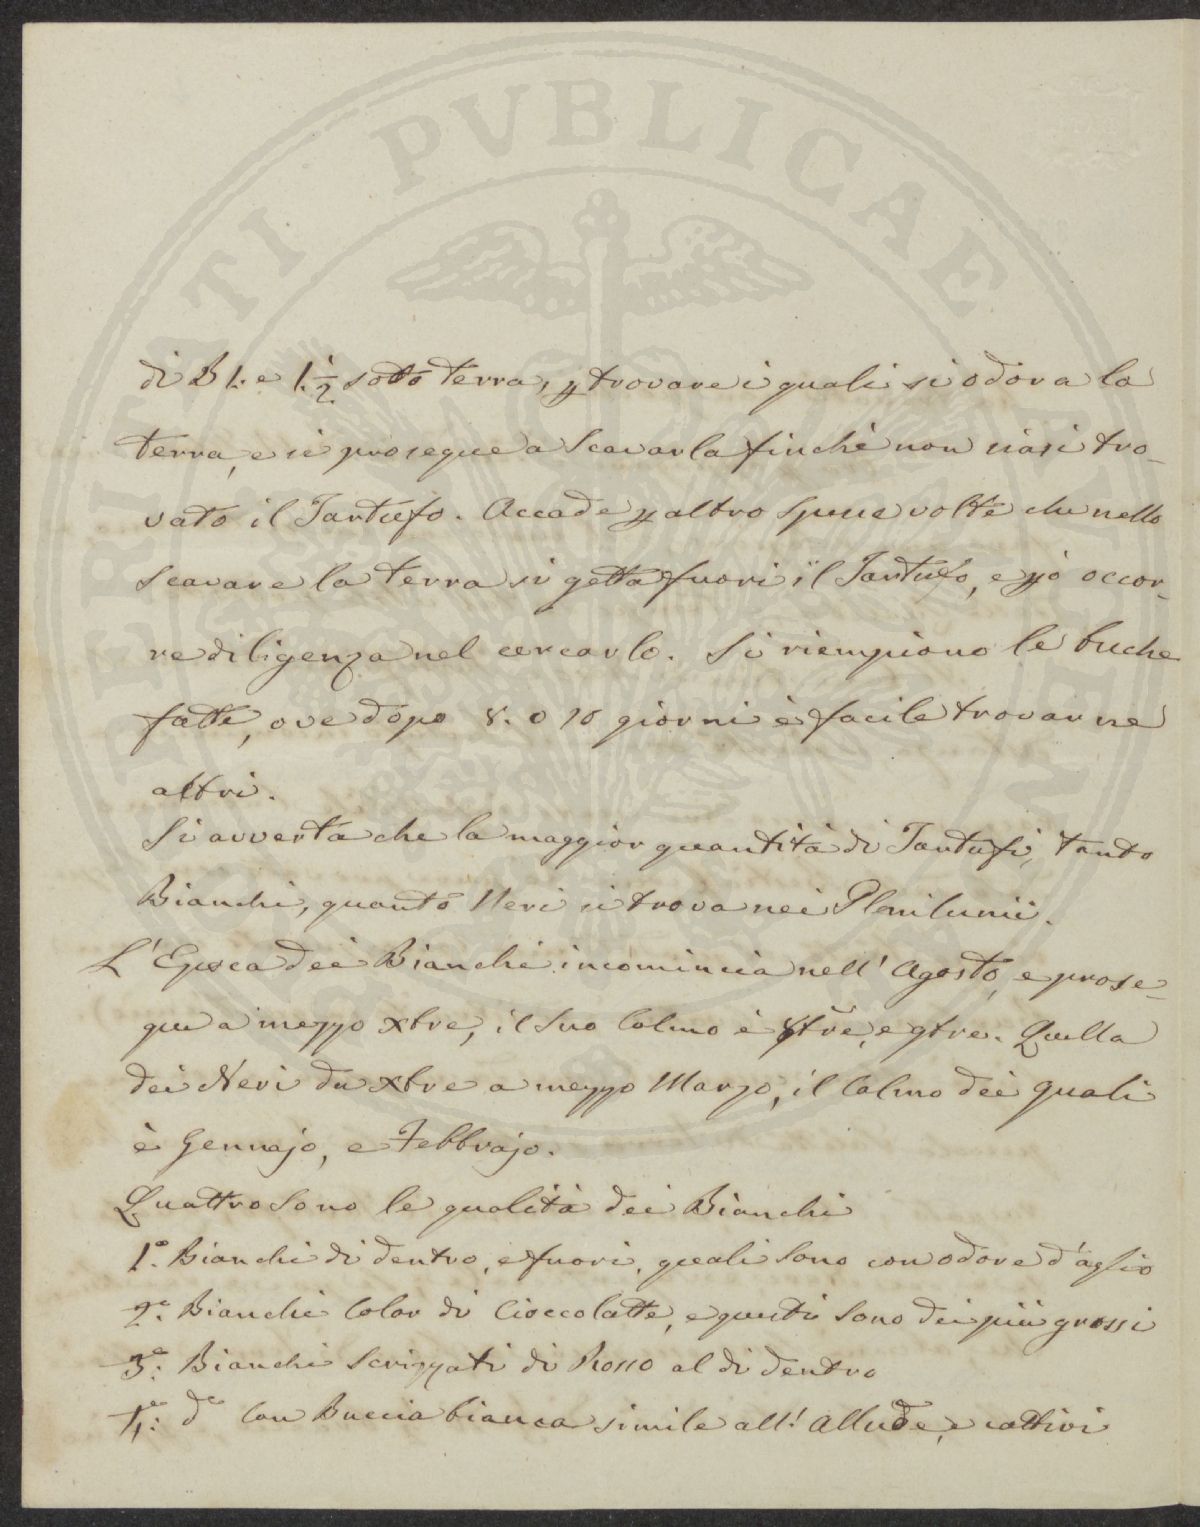 PVBLICAE
di B 1. e 1. ½ sotto terra, p trovare i quali si odora la
terra, e si prosegue a Scavarla finchè non siasi tro-
vato il Tartufo. Accade p altro Spesse volte che nello
Scavare la terra si getta fuori il Tartufo, e pò occor-
re diligenza nel cercarlo. Si riempiono le buche
fatte, ove dopo 8. o 10 giorni è facile trovarne
altri.
Si avverta che la maggior quantità di Tartufi, tanto
Bianchi, quanto Neri si trova nei Plenilunii.
L'Epoca dei Bianchi incomincia nell' Agosto, e prose-
gue a mezzo Xbre, il Suo Colmo è 8bre, e 9bre. Quella
dei Neri da Xbre a mezzo Marzo, il Colmo dei quali
è Gennajo, e Febbrajo.
Quattro Sono le qualità dei Bianchi
1.° Bianchi di dentro, e fuori, quali Sono con odore d'aglio
2.° Bianchi Color di Cioccolatte, e questi Sono dei più grossi
3.° Bianchi Scrizzati di Rosso al di dentro
4.° d° Con Buccia bianca simile all' Allude, e cattivi